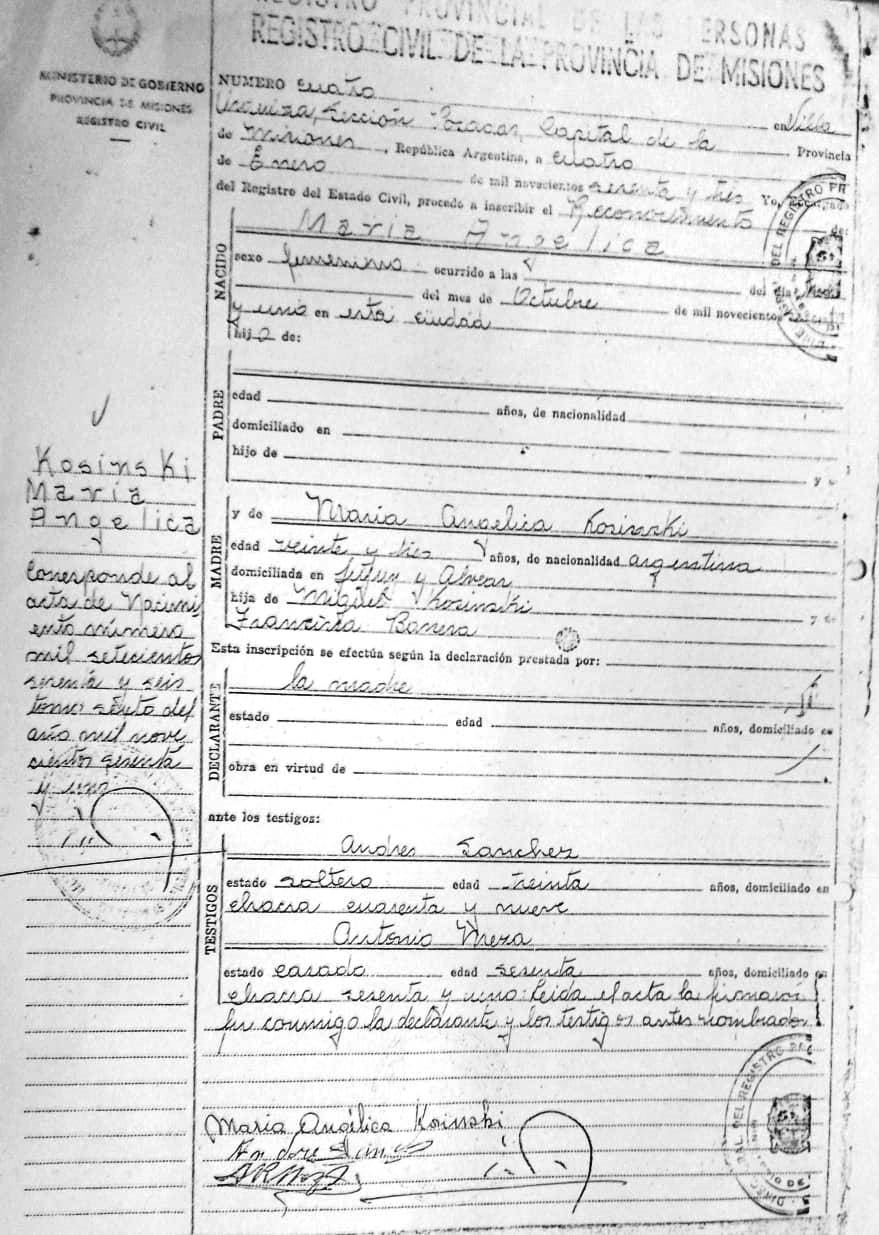 REGISTRO PROVINCIAL DE LAS PERSONAS
REGISTRO CIVIL DE LA PROVINCIA DE MISIONES
MINISTERIO DE GOBIERNO
PROVINCIA DE MISIONES
REGISTRO CIVIL
NUMERO cuatro en Villa
Urquiza, Sección Capital de la Provincia
de Misiones, República Argentina, a cuatro
de Enero de mil novecientos sesenta y tres Yo, Encargado
del Registro del Estado Civil, procedo a inscribir el Reconocimiento de:
NACIDO
Maria Angelica
sexo femenino ocurrido a las
del día
del mes de Octubre de mil novecientos sesenta
y uno en esta ciudad
hija de:
PADRE
edad años, de nacionalidad
domiciliado en
hijo de y de
MADRE
y de Maria Angelica Kosinski
edad veinte y tres años, de nacionalidad argentina
domiciliada en Jujuy y Alvear
hija de Miguel Kosinski y de
Francisca
Esta inscripción se efectúa según la declaración prestada por:
DECLARANTE
la madre
estado edad años, domiciliado en
obra en virtud de
ante los testigos:
TESTIGOS
Andres Sanchez
estado soltero edad treinta años, domiciliado en
chacra cuarenta y nueve
Antonio Meza
estado casado edad sesenta años, domiciliado en
chacra sesenta y uno. Leida el acta la firmaron
conmigo la declarante y los testigos antes nombrados
Kosinski
Maria
Angelica
Corresponde al
acta de Nacimi
ento número
mil setecientos
sesenta y seis
tomo sexto del
año mil nove
cientos sesenta
y uno
Maria Angélica Kosinski